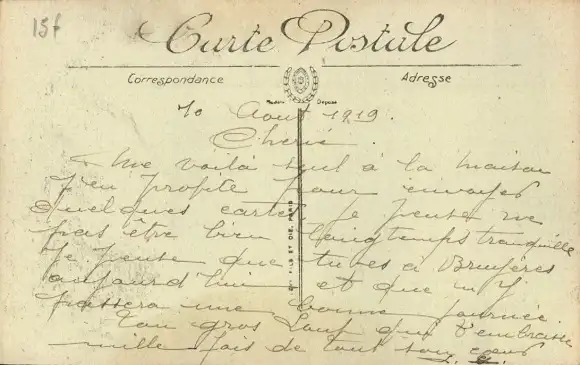 15f
Carte Postale
Correspondance
Adresse
Modèle Déposé
10 Aout 1919.
Cherie.
Me voilà seul à la maison
j'en profite pour envoyer
quelques cartes je pense ne
pas etre bien longtemps tranquille
Je pense que tu es a Bruyères
aujourd'hui et que tu y
passera une bonne journée.
Ton gros Louf qui t'embrasse
mille fois de tout son cœur
FILS ET CIE, PARIS